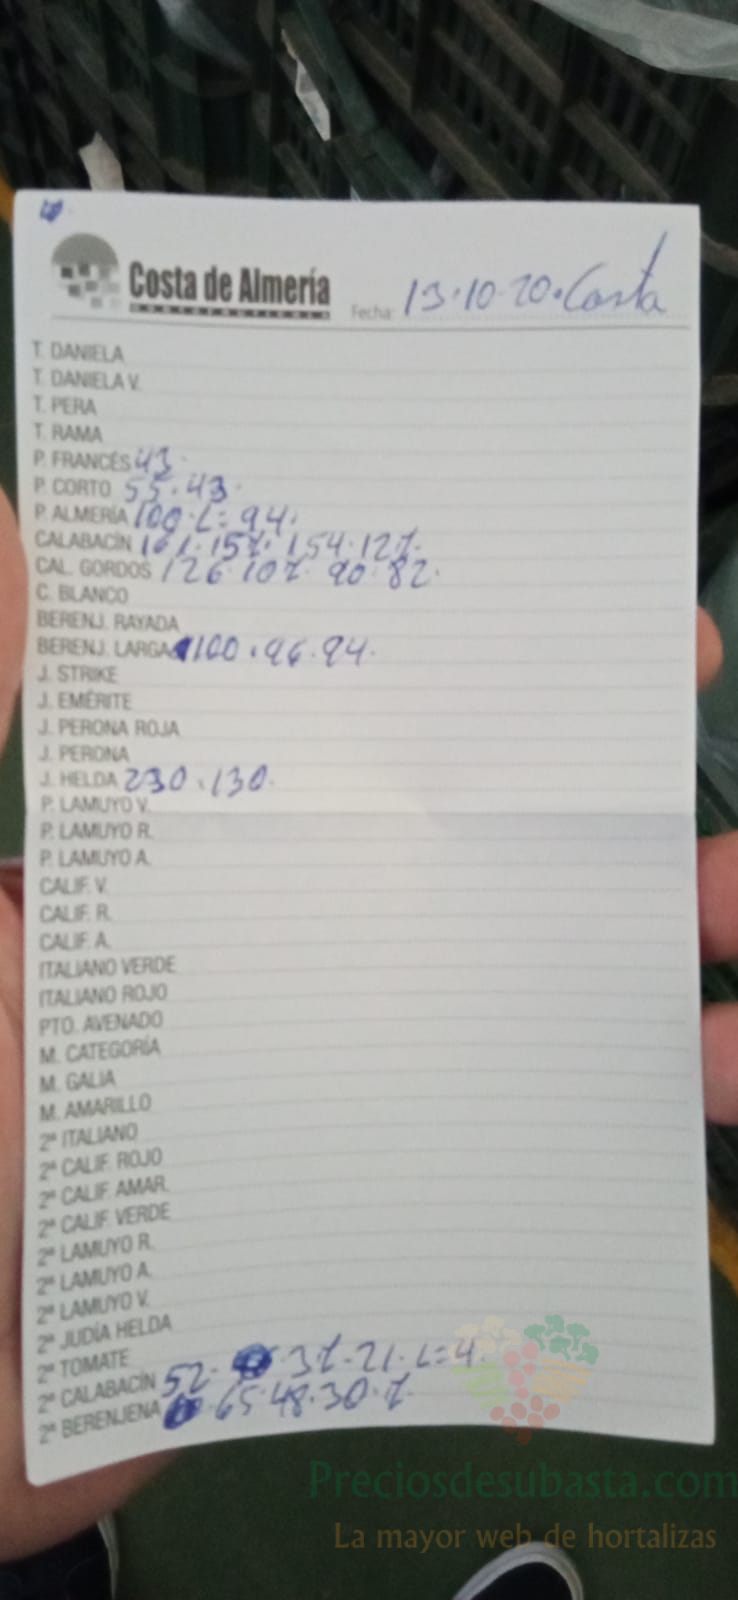 Costa de Almería
HORTOFRUTICOLA
Fecha: 13.10.20. Costa
T. DANIELA
T. DANIELA V.
T. PERA
T. RAMA
P. FRANCÉS 43.
P. CORTO 55.43.
P. ALMERÍA 100.L=94.
CALABACÍN 161.15%.154.12%.
CAL. GORDOS 126.10%.90.82.
C. BLANCO
BERENJ. RAYADA
BERENJ. LARGA 100.96.94.
J. STRIKE
J. EMÉRITE
J. PERONA ROJA
J. PERONA
J. HELDA 230.130.
P. LAMUYO V.
P. LAMUYO R.
P. LAMUYO A.
CALIF. V.
CALIF. R.
CALIF. A.
ITALIANO VERDE
ITALIANO ROJO
PTO. AVENADO
M. CATEGORÍA
M. GALIA
M. AMARILLO
2ª ITALIANO
2ª CALIF. ROJO
2ª CALIF. AMAR.
2ª CALIF. VERDE
2ª LAMUYO R.
2ª LAMUYO A.
2ª LAMUYO V.
2ª JUDÍA HELDA
2ª TOMATE
2ª CALABACÍN 52. 3%.21.L=4.
2ª BERENJENA 65.48.30.%.
Preciosdesubasta.com
La mayor web de hortalizas